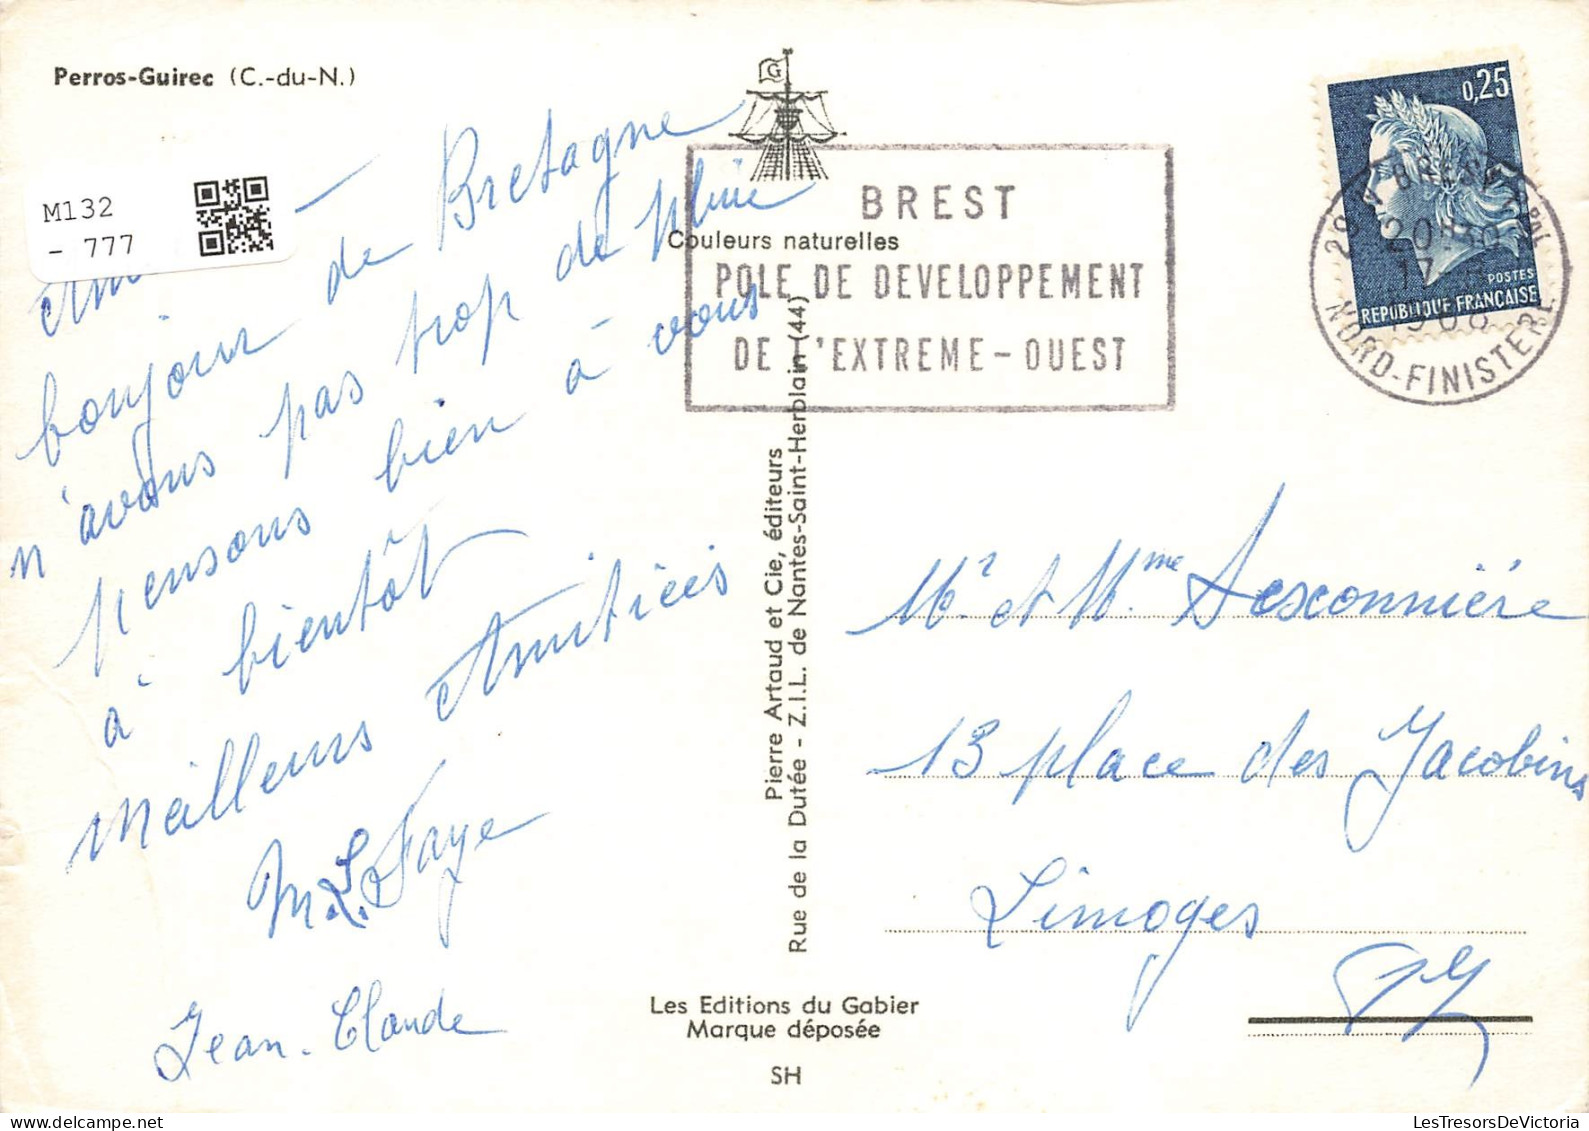 Perros-Guirec (C.-du-N.)
M132
- 777
bonjour de Bretagne
n'avons pas trop de pluie
pensons bien à vous
à bientôt
meilleurs Amitiées
M.L. Faye
Jean-Claude
G
BREST
Couleurs naturelles
POLE DE DEVELOPPEMENT
DE L'EXTREME-OUEST
Pierre Artaud et Cie, éditeurs
Rue de la Dutée - Z.I.L. de Nantes-Saint-Herblain (44)
Les Editions du Gabier
Marque déposée
SH
0,25
POSTES
REPUBLIQUE FRANÇAISE
BREST
1968
NORD-FINISTERE
Mr et Mme Desconnière
13 place des Jacobins
Limoges
LesTresorsDeVictoria